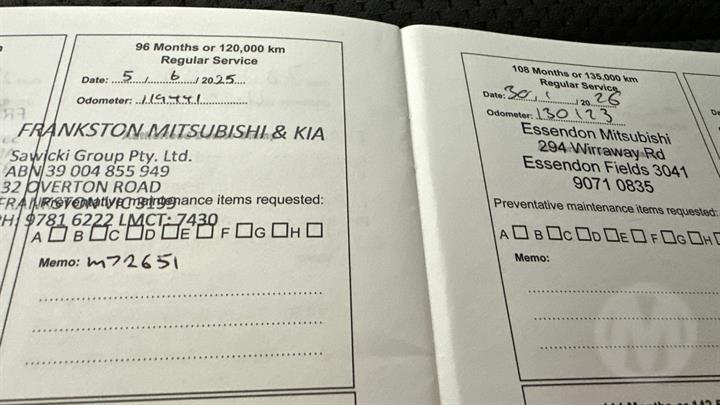 96 Months or 120,000 km
Regular Service
Date: 5 / 6 / 2025
Odometer: 119441
FRANKSTON MITSUBISHI & KIA
Sawicki Group Pty. Ltd.
ABN 39 004 855 949
32 OVERTON ROAD
FRANKSTON VIC 3199
Preventative maintenance items requested:
PH: 9781 6222 LMCT: 7430
A B C D E F G H
Memo: M72651
108 Months or 135,000 km
Regular Service
Date: 30 / 1 / 2026
Odometer: 130123
Essendon Mitsubishi
294 Wirraway Rd
Essendon Fields 3041
9071 0835
Preventative maintenance items requested:
A B C D E F G H
Memo:
M